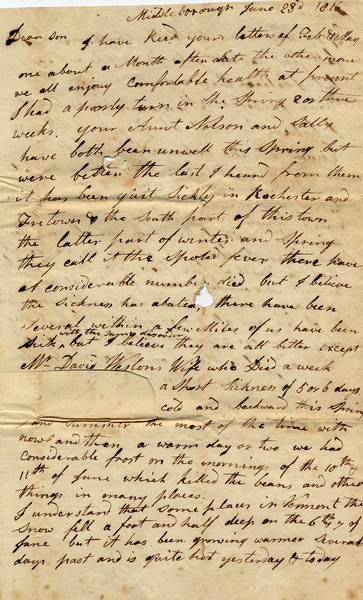 Middleborough June 23d 1816
Dear Son I have Rec'd your letters of Feb &
one about a Month after date the other more
we all enjoy Comfortable health at present
I had a poorly turn in the Spring 2 or three
weeks. your Aunt Nelson and Sally
have both been unwell this Spring but
were better the last I heard from them
it has been quit Sickly in Rochester and
& the South part of this town
the latter part of winter and Spring
they call it the Spoted fever there have
a considerable number died but I believe
the Sickness has abated there have been
Several within a few Miles of us have been
Sick with the Same disorder but I believe they are all better except
Mr David Westons Wife who Died a week
a Short Sickness of 5 or 6 days
cold and backward this Spring
and Summer the most of the time with
now and then a warm day or two we had
Considerable frost on the mornings of the 10th &
11th of June which killed the beans and other
things in many places.
I understand that Some places in Vermont the
Snow fell a foot and half deep on the 6th & 7 of
June but it has been growing warmer Several
days past and is quite hot yesterday & today